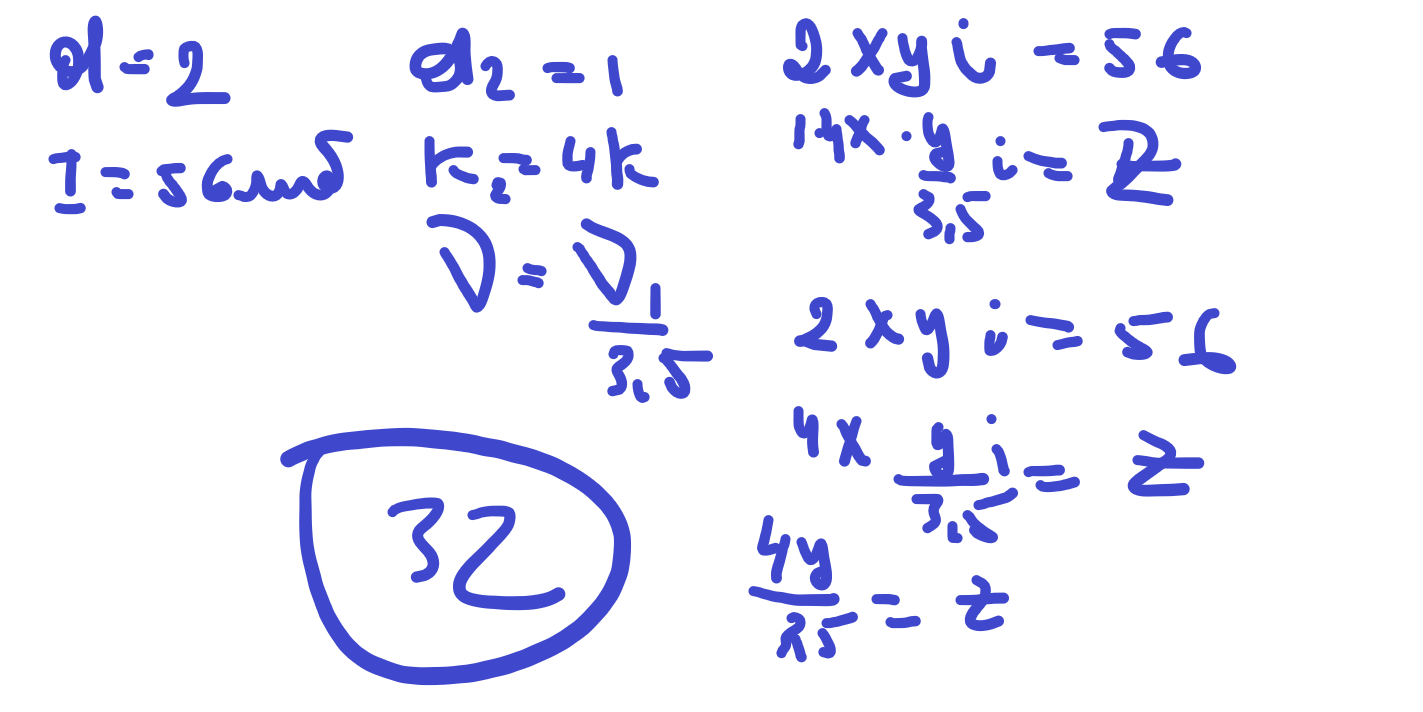 d = 2
I = 56 миб
d2 = 1
K2 = 4K
V = V1/3,5
2xyi = 56
1·4x · y/3,5 i = Z
2xyi = 56
4x y/3,5 i = z
4y/35 = z
32